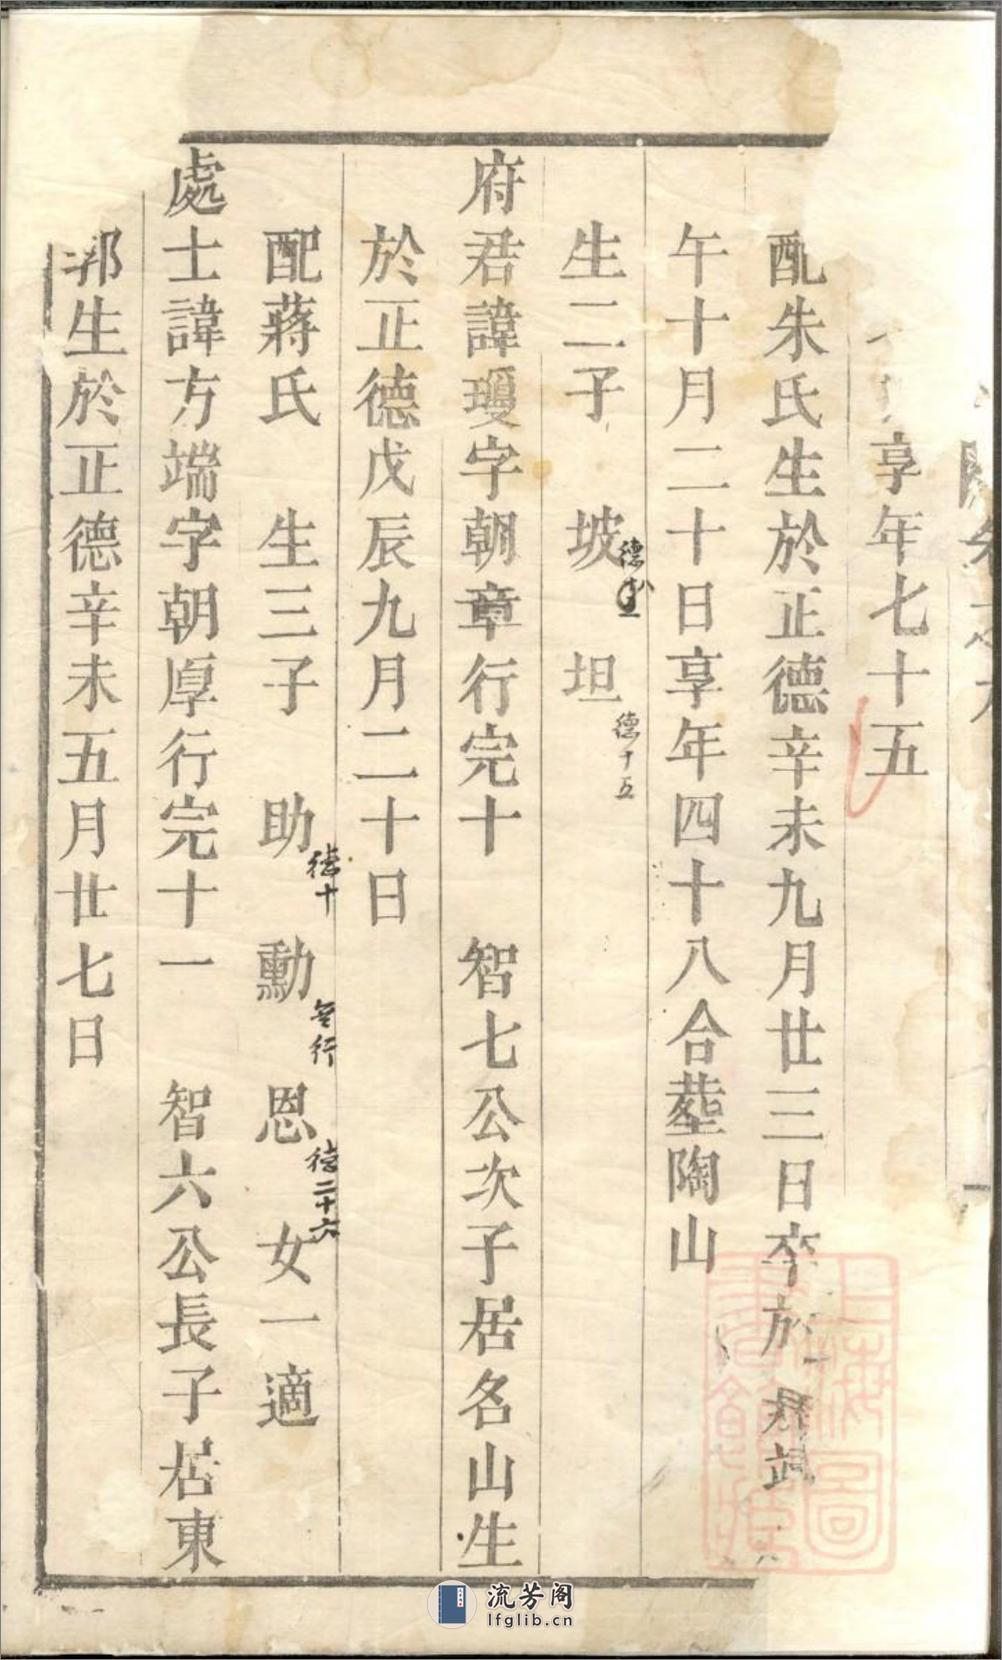 享年七十五
配朱氏生於正德辛未九月廿三日卒於
午十月二十日享年四十八合塟陶山
生二子 坡 坦 德十五
府君諱瓊字朝章行完十 智七公次子居名山生
於正德戊辰九月二十日
配蔣氏 生三子 助 德十 勳 無行 恩 德二十六 女一適
處士諱方端字朝厚行完十一 智六公長子居東
郭生於正德辛未五月廿七日
上海圖書館藏
流芳阁
lfglib.cn